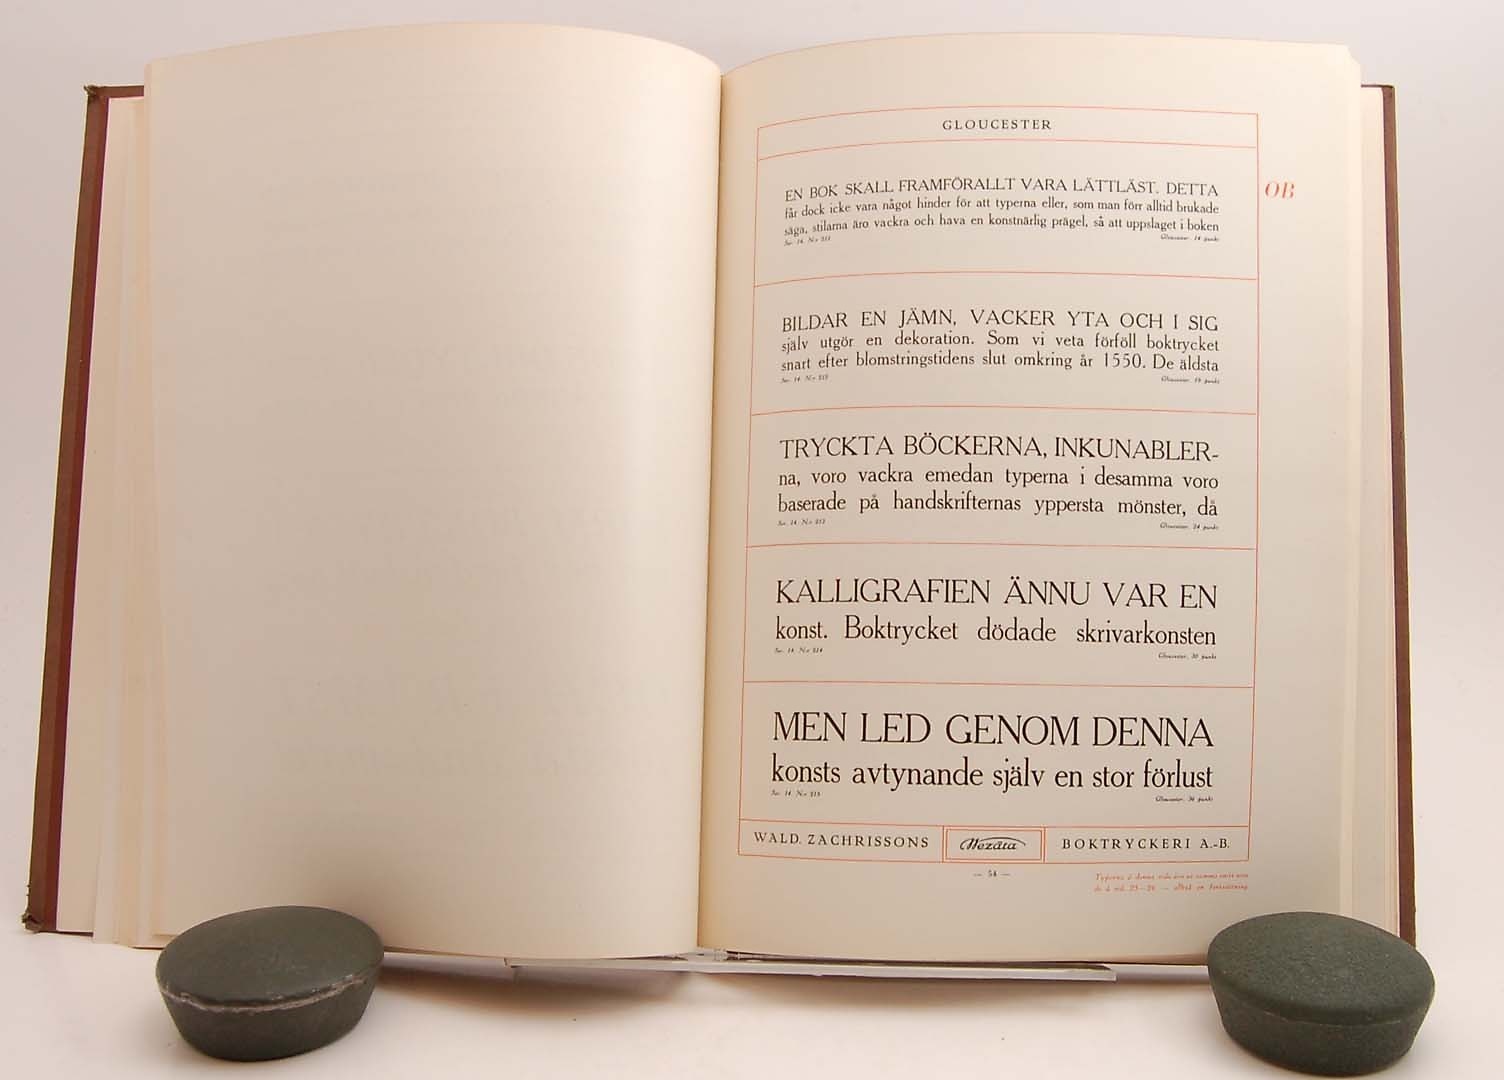 GLOUCESTER
EN BOK SKALL FRAMFÖRALLT VARA LÄTTLÄST. DETTA
får dock icke vara något hinder för att typerna eller, som man förr alltid brukade
säga, stilarna äro vackra och hava en konstnärlig prägel, så att uppslaget i boken
Ser. 14. N:r 211 Gloucester. 14 punkt
OB
BILDAR EN JÄMN, VACKER YTA OCH I SIG
själv utgör en dekoration. Som vi veta förföll boktrycket
snart efter blomstringstidens slut omkring år 1550. De äldsta
Ser. 14. N:r 212 Gloucester. punkt
TRYCKTA BÖCKERNA, INKUNABLER-
na, voro vackra emedan typerna i desamma voro
baserade på handskrifternas yppersta mönster, då
Ser. 14. N:r Gloucester. 24 punkt
KALLIGRAFIEN ÄNNU VAR EN
konst. Boktrycket dödade skrivarkonsten
Ser. 14. N:r 214 Gloucester. 30 punkt
MEN LED GENOM DENNA
konsts avtynande själv en stor förlust
Ser. 14. N:r 215 Gloucester. 36 punkt
WALD. ZACHRISSONS Wezäta BOKTRYCKERI A.-B.
— 54 —
Typerna å denna sida äro av samma snitt som
de å sid. 25—26 — alltså en fortsättning